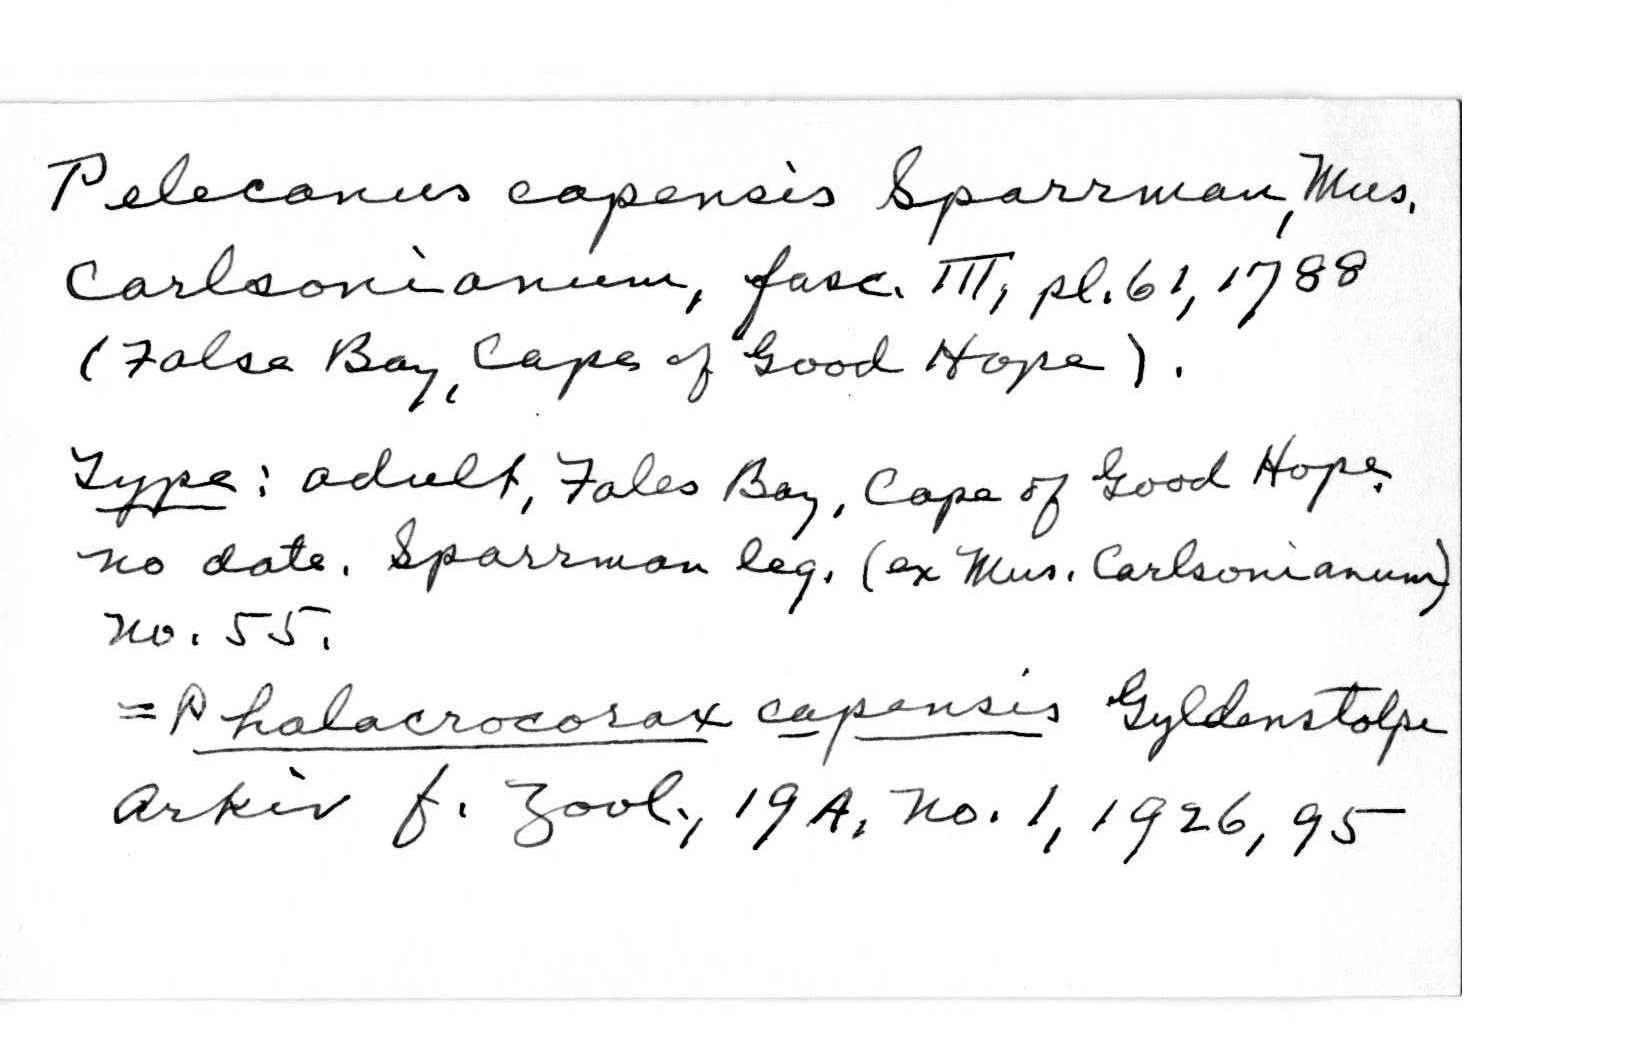 Pelecanus capensis Sparrman, Mus.
Carlsonianum, fasc. III, pl. 61, 1788
(False Bay, Cape of Good Hope).
Type: adult, Fales Bay, Cape of Good Hope.
no date. Sparrman leg. (ex Mus. Carlsonianum)
No. 55.
= Phalacrocorax capensis Gyldenstolpe
Arkiv f. Zool., 19A, No. 1, 1926, 95